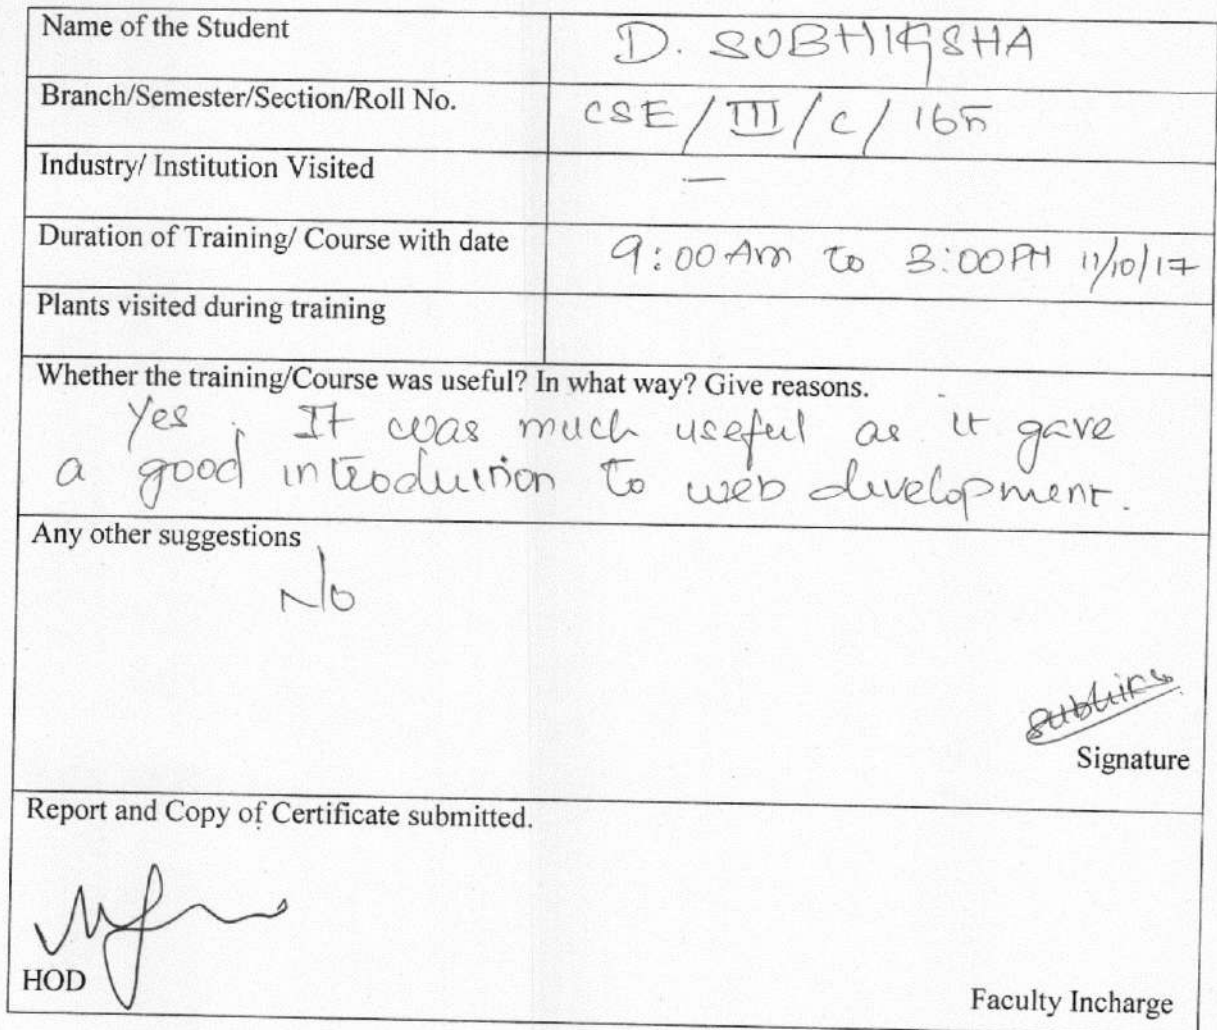 Name of the Student D. SUBHIKSHA
Branch/Semester/Section/Roll No. CSE/III/C/165
Industry/ Institution Visited —
Duration of Training/ Course with date 9:00 Am to 3:00 PM 11/10/17
Plants visited during training
Whether the training/Course was useful? In what way? Give reasons.
Yes. It was much useful as it gave
a good introduction to web development.
Any other suggestions
No
Signature
Report and Copy of Certificate submitted.
HOD
Faculty Incharge